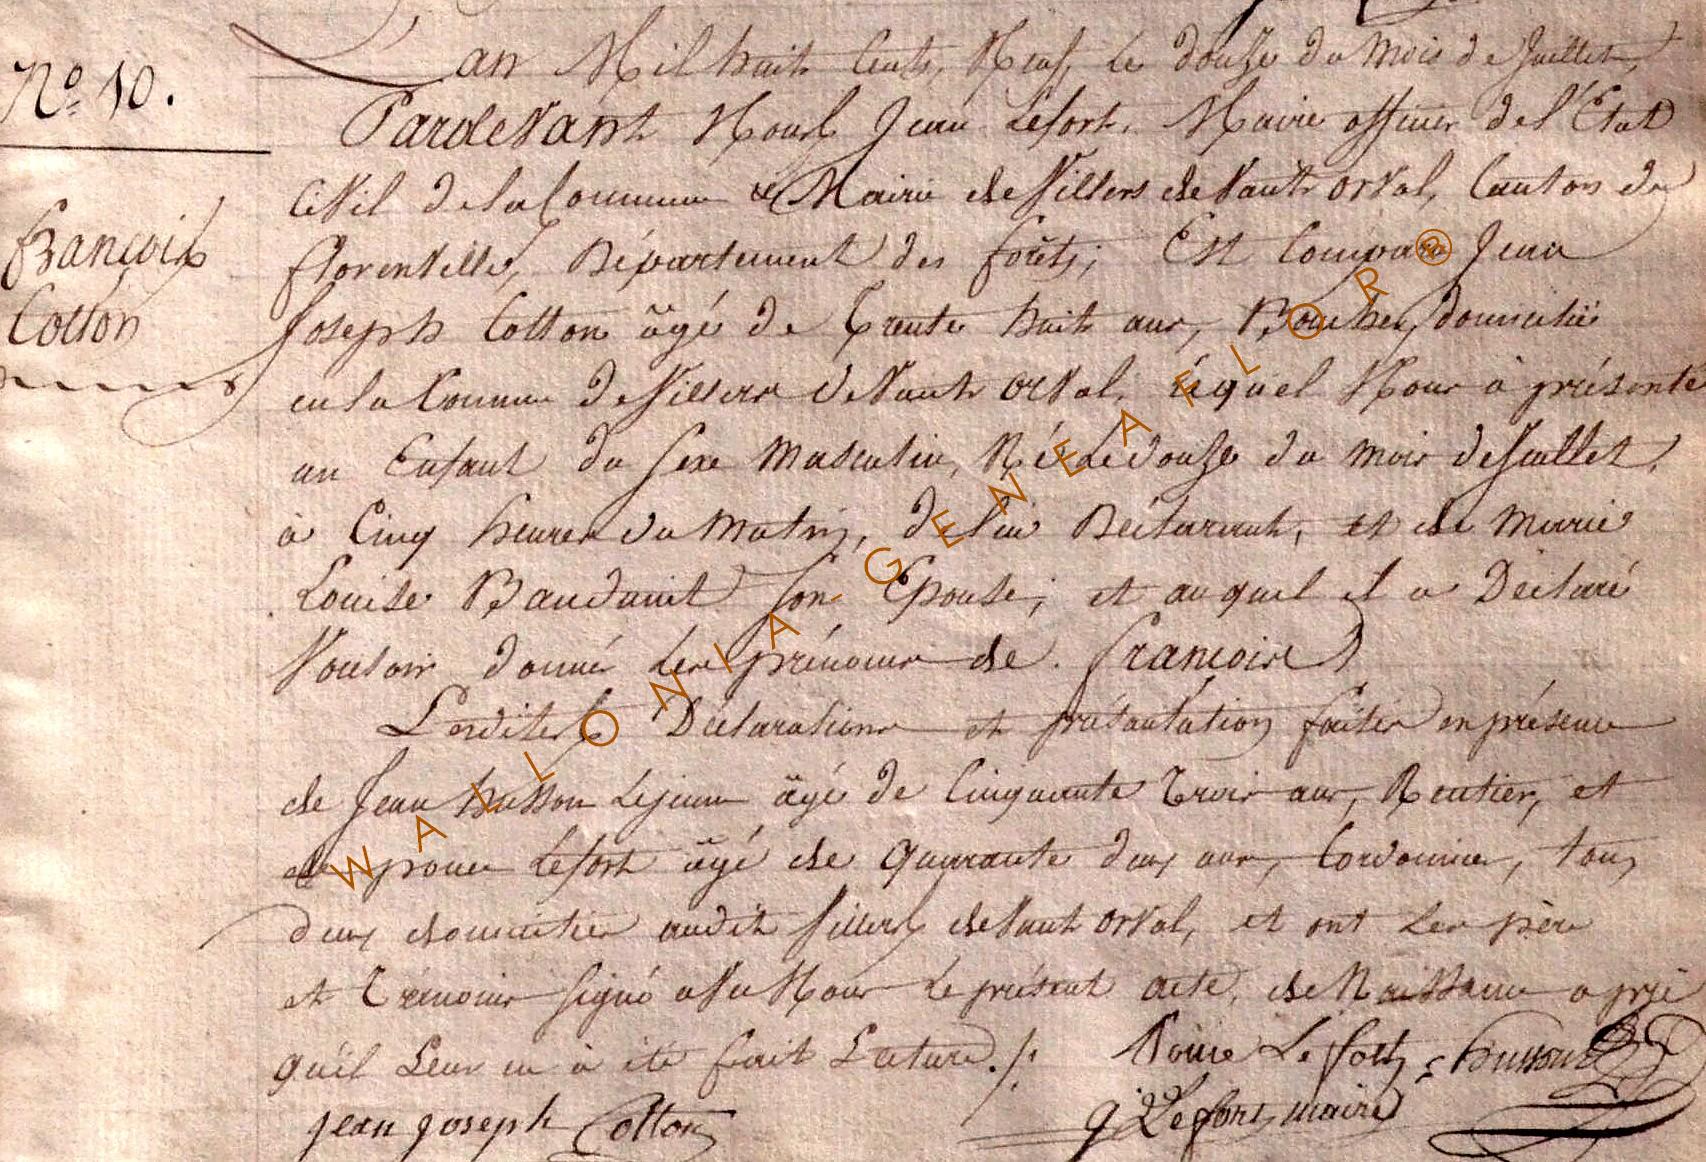 No. 10.
François
Cotton
L'an Mil huit Cents, Neuf, Le douze du mois de Juillet,
Pardevant Nous Jean Lefort, Maire officier de l'Etat
Civil de la Commune & Mairie de Villers devant orval, Canton de
florenville, Département des forêts; Est Comparu Jean
Joseph Cotton âgé de Trente huit ans, domicilié
en la Commune de Villers devant orval, Lequel Nous à présenté
un Enfant du sexe Masculin, Né Le douze du mois de Juillet,
à Cinq heures du Matin, de lui Déclarant, et de Marie
Louise Baudouit son Epouse; et auquel il a Déclaré
Vouloir donner Les prénoms de François
Lesdites Déclarations et présentation faites en présence
de Jean husson Lejeune âgé de Cinquante Trois ans, Rentier, et
de Lefort âgé de quarante deux ans, Cordonnier, tous
deux domiciliés audit Villers devant orval, et ont Les père
et Témoins signé avec Nous Le présent acte, de Naissance après
qu'il Leur en à été fait Lecture ./.
Le fort husson
jean joseph Cotton
J Lefort, maire
WALLONIA - GENEAFLOR®